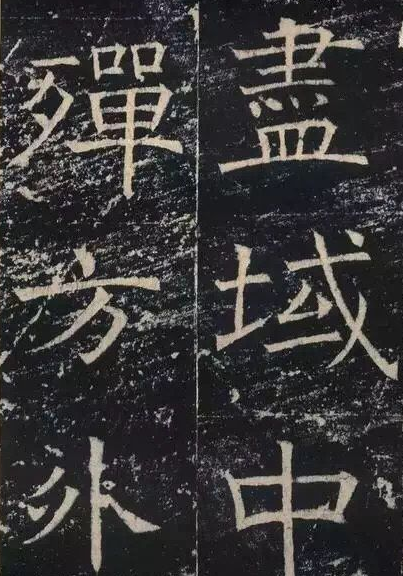 盡域中
殫方外